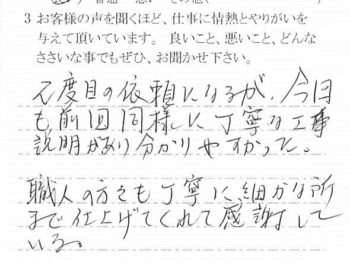 3 お客様の声を聞くほど、仕事に情熱とやりがいを
与えて頂いています。良いこと、悪いこと、どんな
ささいな事でもぜひ、お聞かせ下さい。
度目の依頼になるが、今回
も前回同様に丁寧な工事
説明があり分かりやすかった。
職人の方々も丁寧に、細かな所
まで仕上げてくれて感謝して
いる。